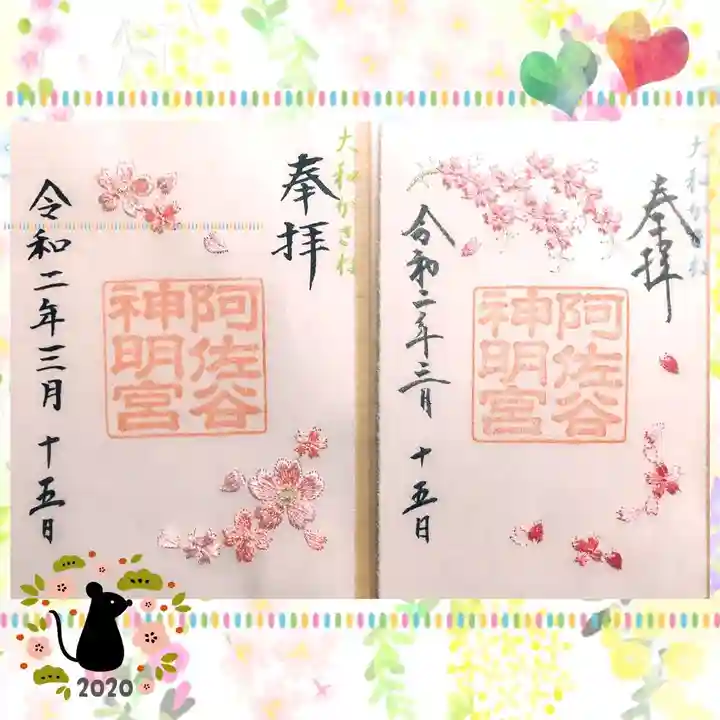 大和がさね
奉拝
阿佐谷
神明宮
令和二年三月 十五日
大和がさね
奉拝
阿佐谷
神明宮
令和二年三月 十五日
2020